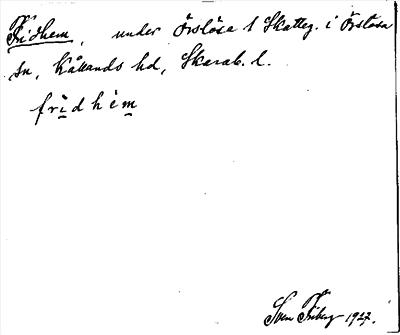 Fridhem, under Örslösa 1 Skatteg. i Örslösa
sn, Kållands hd, Skarab. l.
fri̱dhèm̱
Sven Friberg 1927.